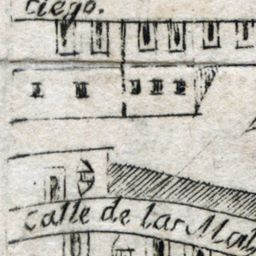 riego.
Calle de las Mal